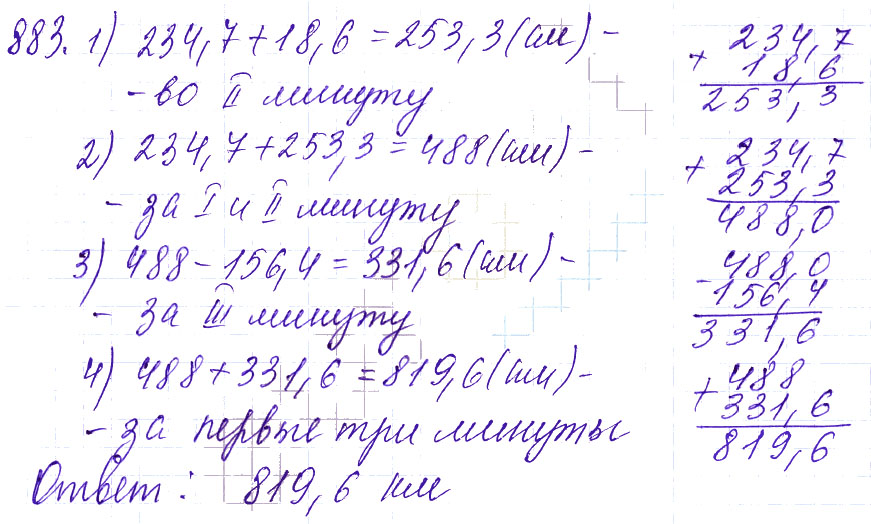 883. 1) 234,7+18,6=253,3(км) -
- во II минуту
2) 234,7+253,3=488(км) -
- за I и II минуту
3) 488-156,4=331,6(км) -
- за III минуту
4) 488+331,6=819,6(км) -
- за первые три минуты
Ответ: 819,6 км
+ 234,7
18,6
253,3
+ 234,7
253,3
488,0
- 488,0
156,4
331,6
+ 488
331,6
819,6